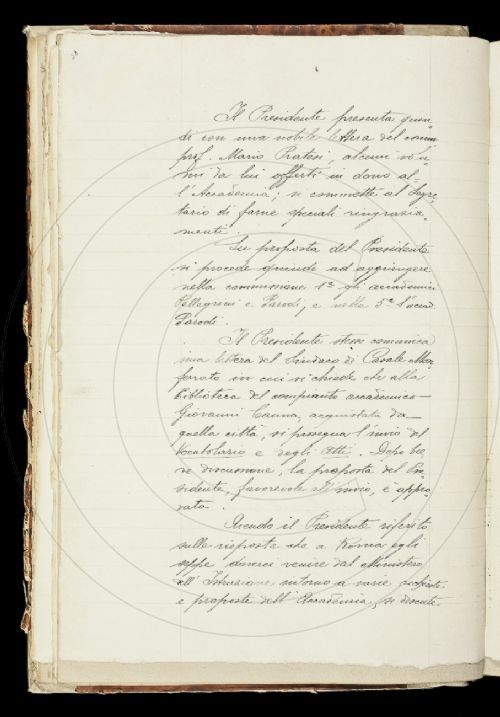 58
Il Presidente presenta quin-
di con una nobile lettera del comm.
prof. Mario Pratesi, alcuni volu-
mi da lui offerti in dono al-
l'Accademia; si commette al Segre-
tario di farne speciali ringrazia-
menti.
Su proposta del Presidente
si procede quindi ad aggiungere
nella commissione 1ª gli accademici
Pellegrini e Parodi, e nella 5ª l'accad.
Parodi.
Il Presidente stesso comunica
una lettera del Sindaco di Casale Mon-
ferrato in cui si chiede che alla
biblioteca del compianto accademico
Giovanni Canna, acquistata da
quella città, si prosegua l'invio del
Vocabolario e degli Atti. Dopo bre-
ve discussione, la proposta del Pre-
sidente, favorevole all'invio, è appro-
vata.
Avendo il Presidente riferito
sulle risposte che a Roma egli
seppe doverci venire dal Ministero
dell'Istruzione intorno a varie richieste
e proposte dell'Accademia, si discute